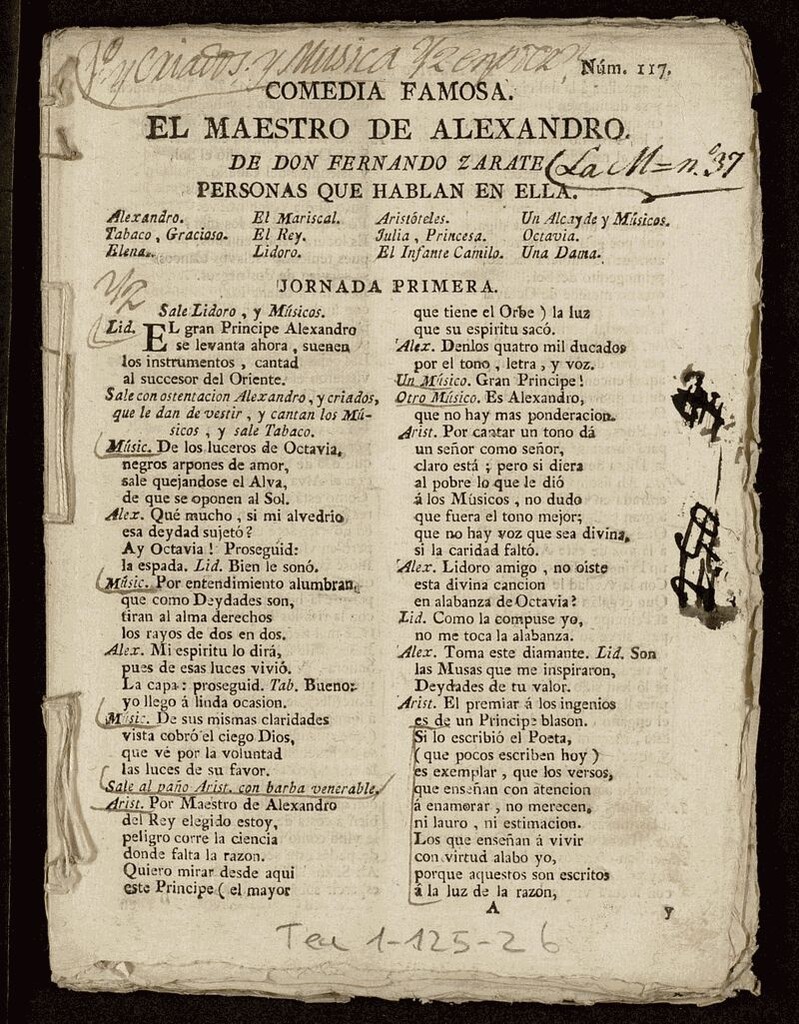 y Criados y Musica
Núm. 117.
COMEDIA FAMOSA.
EL MAESTRO DE ALEXANDRO.
DE DON FERNANDO ZARATE
La M = n.º 37
PERSONAS QUE HABLAN EN ELLA.
Alexandro. El Mariscal. Aristóteles. Un Alcayde y Músicos.
Tabaco, Gracioso. El Rey. Julia, Princesa. Octavia.
Elena. Lidoro. El Infante Camilo. Una Dama.
JORNADA PRIMERA.
Sale Lidoro, y Músicos.
Lid. EL gran Principe Alexandro
se levanta ahora, suenen
los instrumentos, cantad
al successor del Oriente.
Sale con ostentacion Alexandro, y criados,
que le dan de vestir, y cantan los Mú-
sicos, y sale Tabaco.
Músic. De los luceros de Octavia,
negros arpones de amor,
sale quejandose el Alva,
de que se oponen al Sol.
Alex. Qué mucho, si mi alvedrio
esa deydad sujetó?
Ay Octavia! Proseguid:
la espada. Lid. Bien le sonó.
Músic. Por entendimiento alumbran,
que como Deydades son,
tiran al alma derechos
los rayos de dos en dos.
Alex. Mi espiritu lo dirá,
pues de esas luces vivió.
La capa: proseguid. Tab. Bueno:
yo llego á linda ocasion.
Músic. De sus mismas claridades
vista cobró el ciego Dios,
que vé por la voluntad
las luces de su favor.
Sale al paño Arist. con barba venerable.
Arist. Por Maestro de Alexandro
del Rey elegido estoy,
peligro corre la ciencia
donde falta la razon.
Quiero mirar desde aqui
este Principe ( el mayor
que tiene el Orbe ) la luz
que su espiritu sacó.
Alex. Denlos quatro mil ducados
por el tono, letra, y voz.
Un Músico. Gran Principe!
Otro Músico. Es Alexandro,
que no hay mas ponderacion.
Arist. Por cantar un tono dá
un señor como señor,
claro está; pero si diera
al pobre lo que le dió
á los Músicos, no dudo
que fuera el tono mejor;
que no hay voz que sea divina,
si la caridad faltó.
Alex. Lidoro amigo, no oiste
esta divina cancion
en alabanza de Octavia?
Lid. Como la compuse yo,
no me toca la alabanza.
Alex. Toma este diamante. Lid. Son
las Musas que me inspiraron,
Deydades de tu valor.
Arist. El premiar á los ingenios
es de un Principe blason.
Si lo escribió el Poeta,
( que pocos escriben hoy )
es exemplar, que los versos,
que enseñan con atencion
á enamorar, no merecen,
ni lauro, ni estimacion.
Los que enseñan á vivir
con virtud alabo yo,
porque aquestos son escritos
á la luz de la razon,
A y
Tea 1-125-26